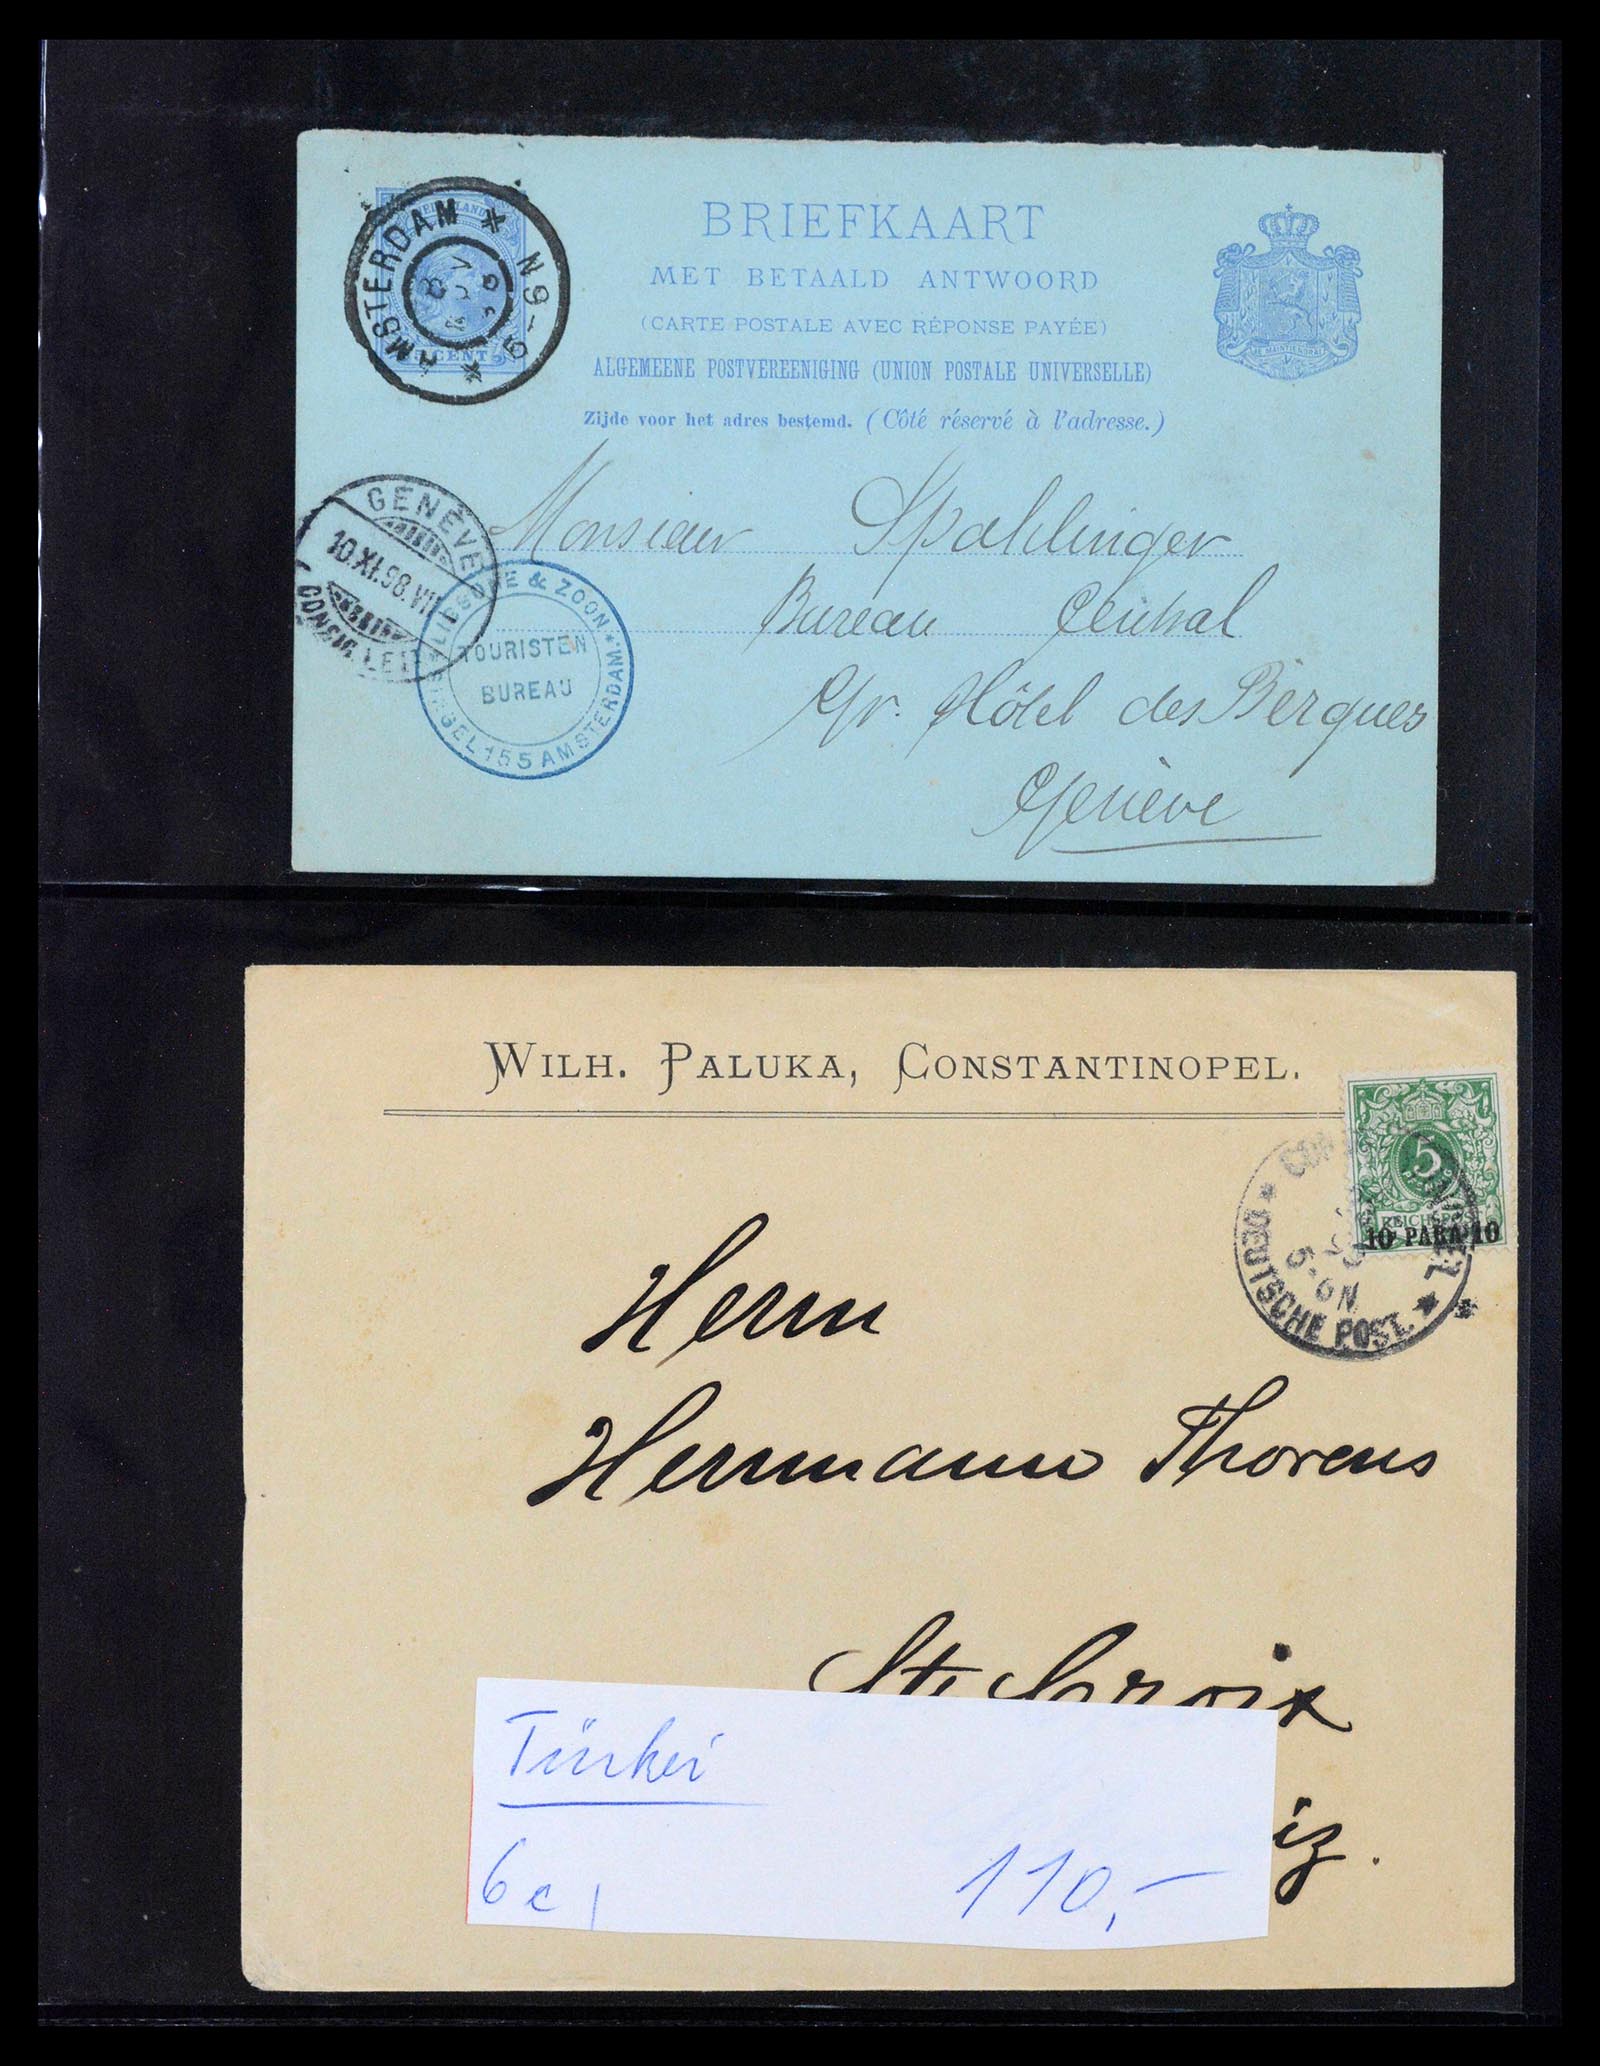 BRIEFKAART
MET BETAALD ANTWOORD
(CARTE POSTALE AVEC RÉPONSE PAYÉE)
ALGEMEENE POSTVEREENIGING (UNION POSTALE UNIVERSELLE)
Zijde voor het adres bestemd. (Côté réservé à l'adresse.)
AMSTERDAM * N 9-9 *
CENT
JE MAINTIENDRAI
GENÈVE
10.XI.98.VII
& ZOON * SINGEL 155 AMSTERDAM
TOURISTEN
BUREAU
Monsieur Spahlinger
Bureau Central
Gr. Hôtel des Bergues
Genève
WILH. PALUKA, CONSTANTINOPEL.
5
REICHSPOST
10 PARA 10
5-6N
* DEUTSCHE POST. *
Herrn
Hermann Thorens
Ste Croix
iz.
Türkei
6c 110,-